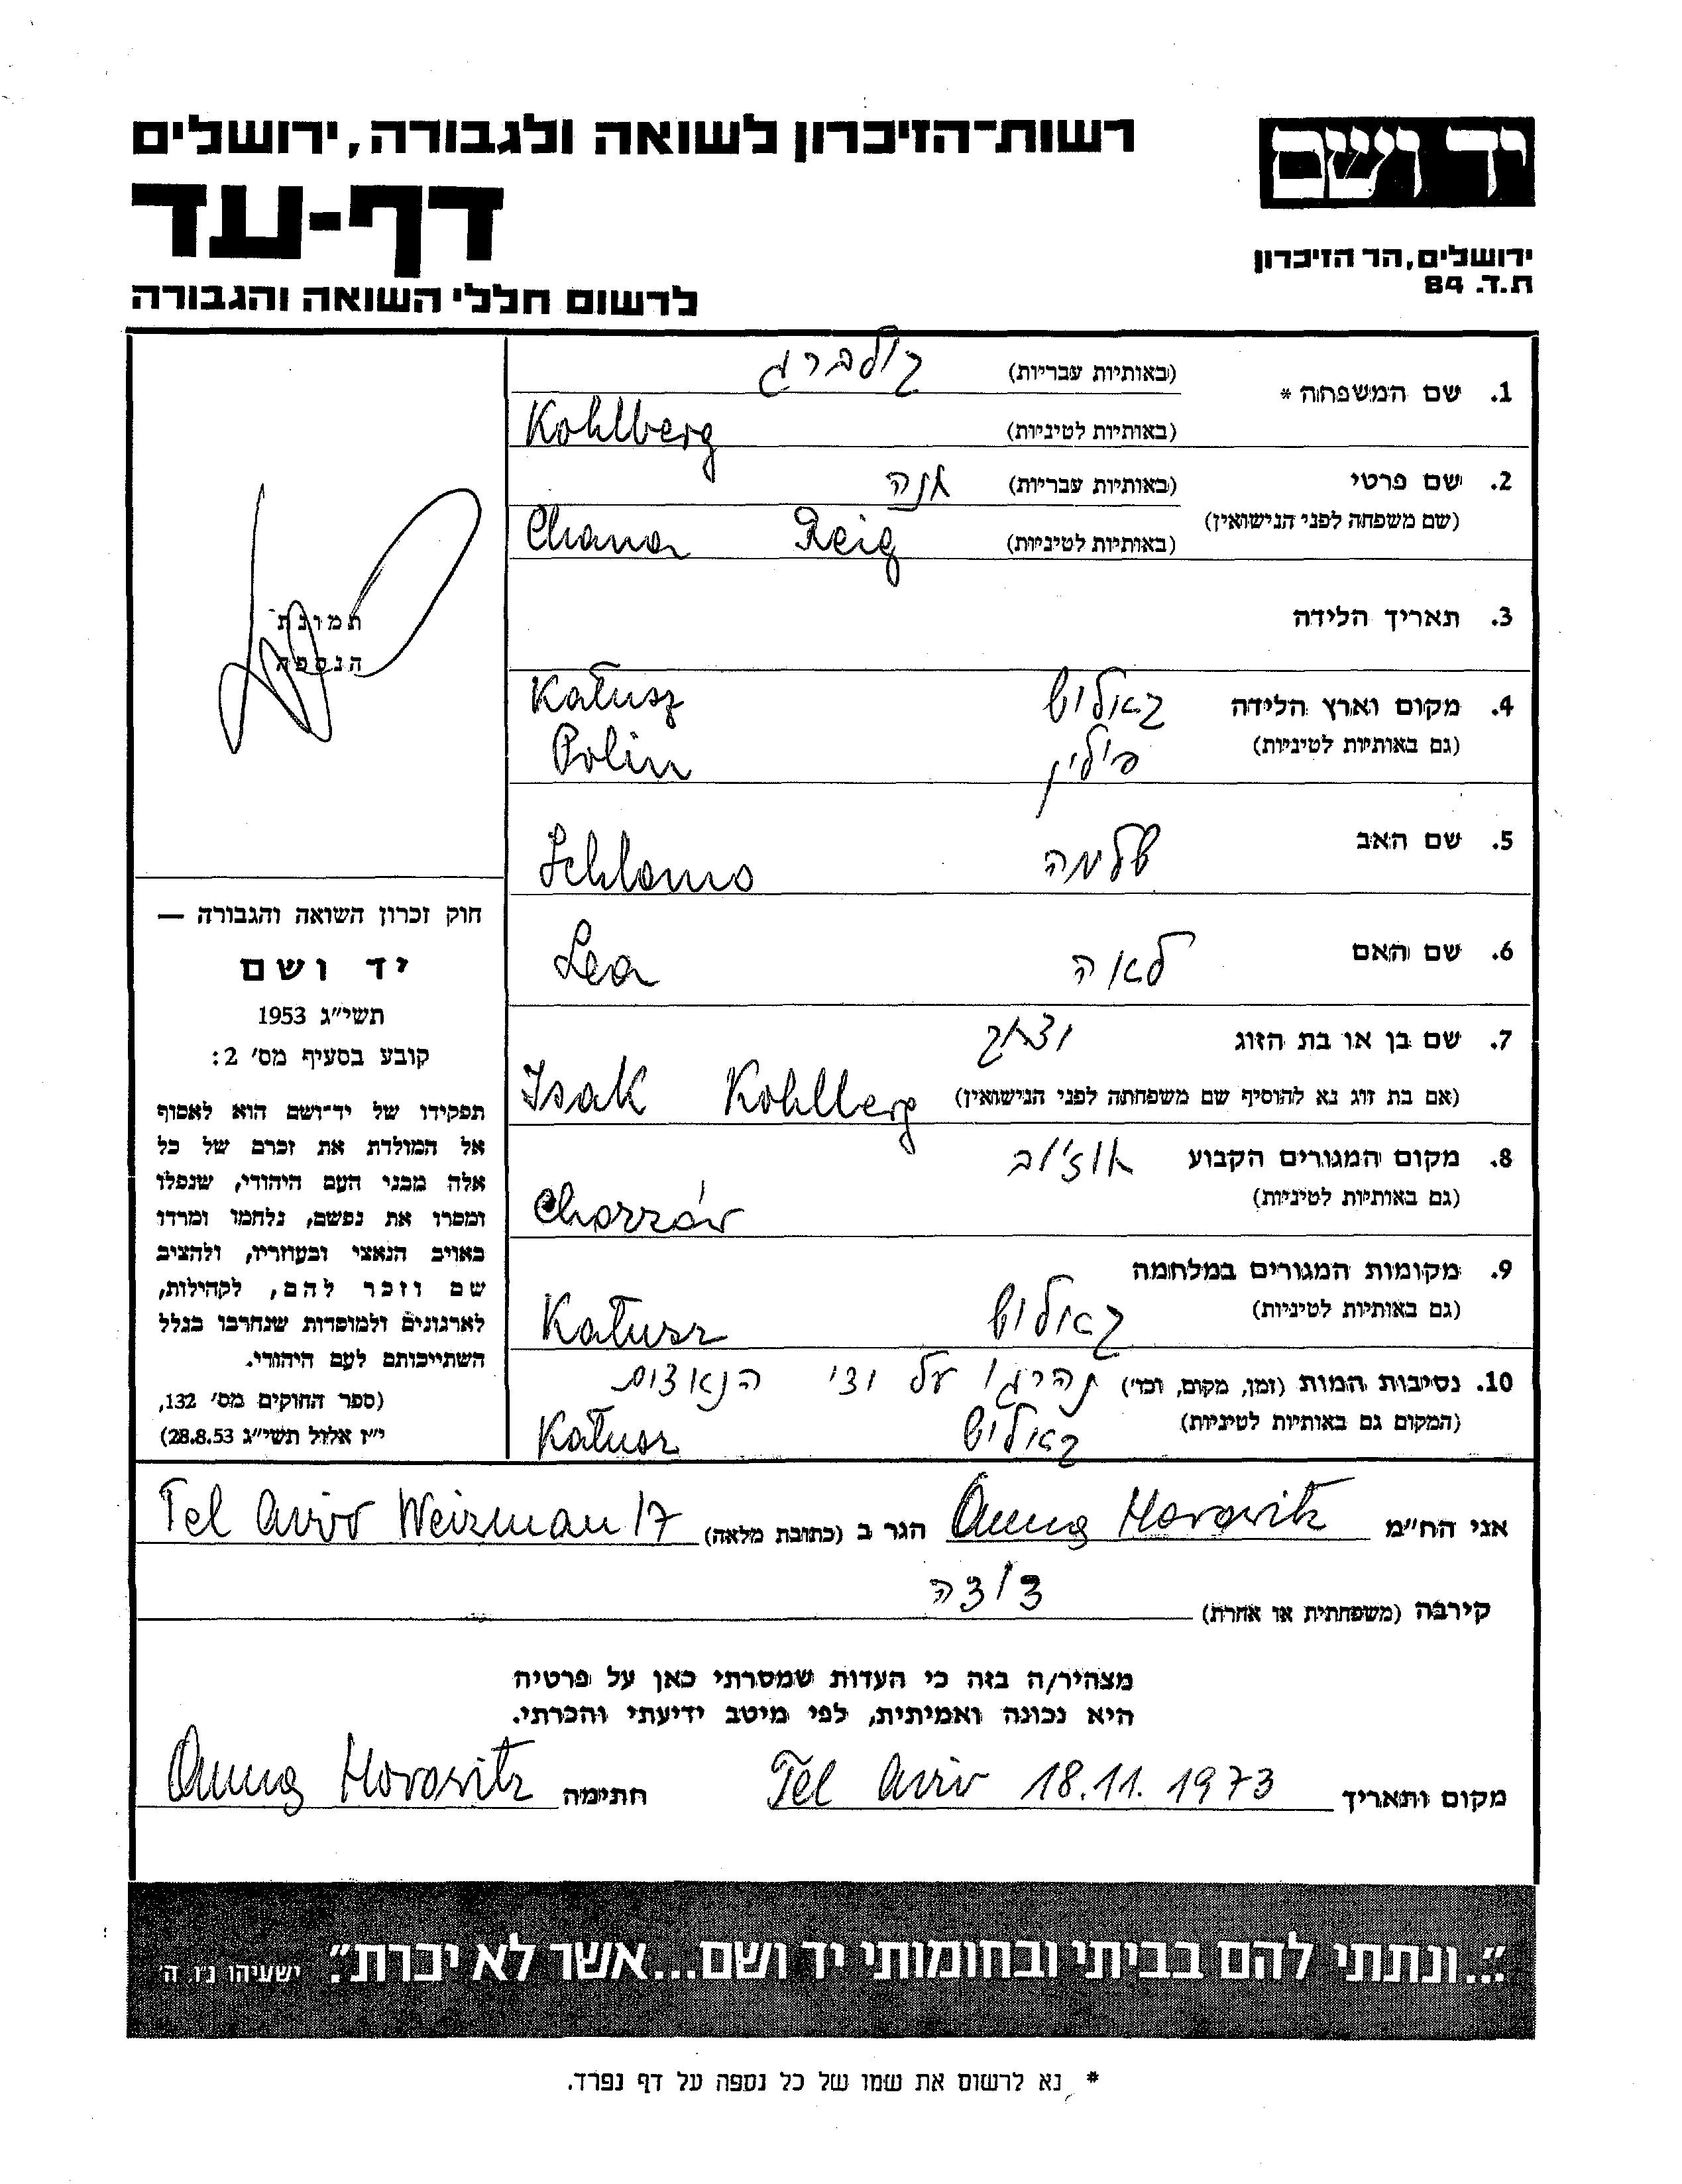 רשות־הזיכרון לשואה ולגבורה, ירושלים
יד ושם
דף-עד
ירושלים, הר הזיכרון
ת.ד. 84
לרשום חללי השואה והגבורה
1. שם המשפחה * (באותיות עבריות) קולברג
(באותיות לטיניות) Kohlberg
2. שם פרטי (באותיות עבריות) חנה
(שם משפחה לפני הנישואין) (באותיות לטיניות) Chana Reig
תמונת
הנספה
3. תאריך הלידה
4. מקום וארץ הלידה קאלוש Kałusz
(גם באותיות לטיניות) פולין Polin
5. שם האב שלמה Schlomo
6. שם האם לאה Lea
7. שם בן או בת הזוג יצחק
(אם בת זוג נא להוסיף שם משפחתה לפני הנישואין) Isak Kohlberg
8. מקום המגורים הקבוע חוז'וב
(גם באותיות לטיניות) Chorzów
9. מקומות המגורים במלחמה
(גם באותיות לטיניות) קאלוש Kałusz
10. נסיבות המות (זמן, מקום, וכו') נהרגו על ידי הנאצים
(המקום גם באותיות לטיניות) קאלוש Kałusz
חוק זכרון השואה והגבורה —
יד ושם
תשי"ג 1953
קובע בסעיף מס' 2:
תפקידו של יד־ושם הוא לאסוף
אל המולדת את זכרם של כל
אלה מבני העם היהודי, שנפלו
ומסרו את נפשם, נלחמו ומרדו
באויב הנאצי ובעוזריו, ולהציב
שם וזכר להם, לקהילות,
לארגונים ולמוסדות שנחרבו בגלל
השתייכותם לעם היהודי.
(ספר החוקים מס' 132,
י"ז אלול תשי"ג 28.8.53)
אני הח"מ Anna Horowitz הגר ב (כתובת מלאה) Tel Aviv Weizman 17
קירבה (משפחתית או אחרת) דודה
מצהיר/ה בזה כי העדות שמסרתי כאן על פרטיה
היא נכונה ואמיתית, לפי מיטב ידיעתי והכרתי.
מקום ותאריך Tel Aviv 18.11.1973 חתימה Anna Horowitz
"...ונתתי להם בביתי ובחומותי יד ושם...אשר לא יכרת". ישעיהו נ"ו ה'
* נא לרשום את שמו של כל נספה על דף נפרד.